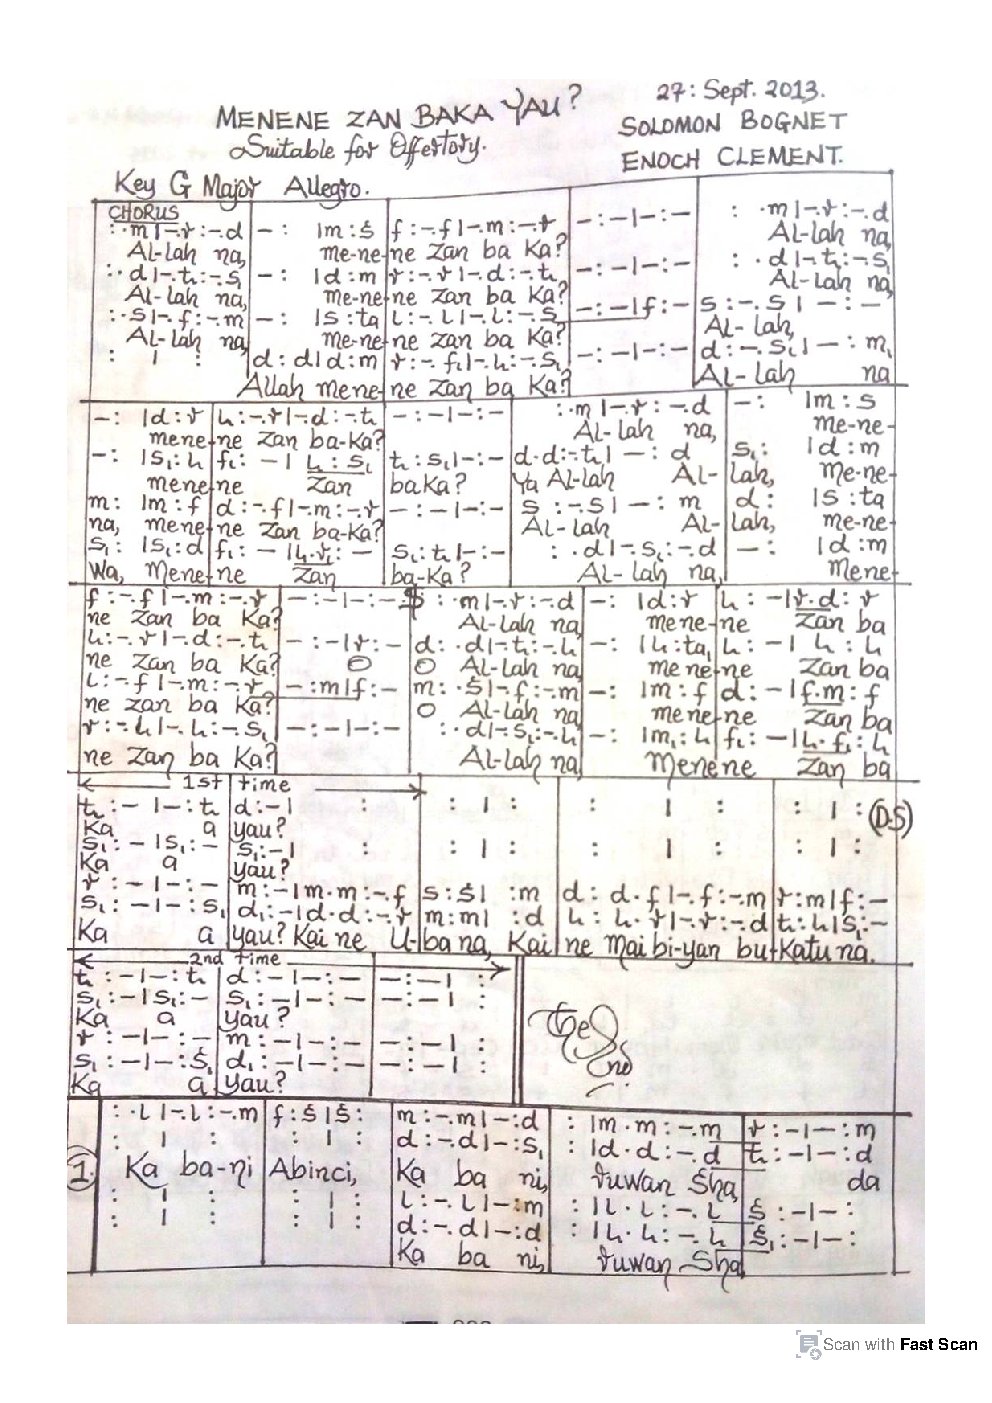 27: Sept. 2013.
MENENE ZAN BAKA YAU?
SOLOMON BOGNET
Suitable for Offertory.
ENOCH CLEMENT.
Key G Major Allegro.
CHORUS
: ·m | -.r : -.d | - : | m : s | f : -.f | -.m : -.r | - : - | - : - | : ·m | -.r : -.d
Al-lah na, me-ne-ne Zan ba Ka? Al-lah na,
: ·d | -.t₁ : -.s₁ | - : | d : m | r : -.r | -.d : -.t₁ | - : - | - : - | : ·d | -.t₁ : -.s₁
Al-lah na, me-ne-ne Zan ba Ka? Al-lah na,
: ·s | -.f : -.m | - : | s : ta | l : -.l | -.l : -.s | - : - | f : - | s : -.s | - : -
Al-lah na, me-ne-ne Zan ba Ka? Al-lah,
: | : | d : d | d : m | r : -.f₁ | -.l₁ : -.s₁ | - : - | - : - | d : -.s₁ | - : m₁
Allah mene-ne Zan ba Ka? Al-lah na
- : | d : r | l₁ : -.r | -.d : -.t₁ | - : - | - : - | : ·m | -.r : -.d | - : | m : s
mene-ne Zan ba-Ka? Al-lah na, me-ne-
- : | s₁ : l₁ | f₁ : - | l₁ : s₁ | t₁ : s₁ | - : - | d·d : -.t₁ | - : d | s₁ : | d : m
mene-ne Zan baKa? Ya Al-lah Al-lah, me-ne-
m : | m : f | d : -.f | -.m : -.r | - : - | - : - | s : -.s | - : m | d : | s : ta
na, mene-ne Zan ba-Ka? Al-lah Al-lah, me-ne-
s₁ : | s₁ : d | f₁ : - | l₁.r₁ : - | s₁ : t₁ | - : - | : ·d | -.s₁ : -.d | - : | d : m
Wa, Mene-ne Zan ba-Ka? Al-lah na, Mene-
f : -.f | -.m : -.r | - : - | - : - | : ·m | -.r : -.d | - : | d : r | l₁ : - | r·d : r
ne Zan ba Ka? Al-lah na, mene-ne Zan ba
l₁ : -.r | -.d : -.t₁ | - : - | r : - | d : ·d | -.t₁ : -.l₁ | - : | l₁ : ta₁ | l₁ : - | l₁ : l₁
ne Zan ba Ka? O O Al-lah na, mene-ne Zan ba
l : -.f | -.m : -.r | - : m | f : - | m : ·s | -.f : -.m | - : | m : f | d : - | f.m : f
ne Zan ba Ka? O Al-lah na, mene-ne Zan ba
r : -.l₁ | -.l₁ : -.s₁ | - : - | - : - | : ·d | -.s₁ : -.l₁ | - : | m₁ : l₁ | f₁ : - | l₁·f₁ : l₁
ne Zan ba Ka? Al-lah na, Menene Zan ba
1st time
t₁ : - | - : t₁ | d : - | : | : | : | : | : | : | : (D.S)
Ka a yau?
s₁ : - | s₁ : - | s₁ : - | : | : | : | : | : | : | :
Ka a yau?
r : - | - : - | m : - | m·m : -.f | s : s | : m | d : d·f | -.f : -.m | r : m | f : -
s₁ : - | - : s₁ | d₁ : - | d·d : -.r | m : m | : d | l₁ : l₁·r | -.r : -.d | t₁ : l₁ | s₁ : -
Ka a yau? Kai ne U-ba na, Kai ne Mai bi-yan bu-Katu na.
2nd time
t₁ : - | - : t₁ | d : - | - : - | - : - | :
s₁ : - | s₁ : - | s₁ : - | - : - | - : - | :
Ka a yau?
r : - | - : - | m : - | - : - | - : - | :
s₁ : - | - : s₁ | d₁ : - | - : - | - : - | :
Ka a yau?
The End
1.
: ·l | -.l : -.m | f : s | s : | m : -.m | - : d | : | m·m : -.m | r : - | - : m
: | : | : | : | d : -.d | - : s₁ | : | d·d : -.d | t₁ : - | - : d
Ka ba-ni Abinci, Ka ba ni, ruwan Sha da
: | : | : | : | l : -.l | - : m | : | l·l : -.l | s : - | - :
: | : | : | : | d : -.d | - : d | : | l₁·l₁ : -.l₁ | s₁ : - | - :
Ka ba ni, ruwan Sha
Scan with Fast Scan